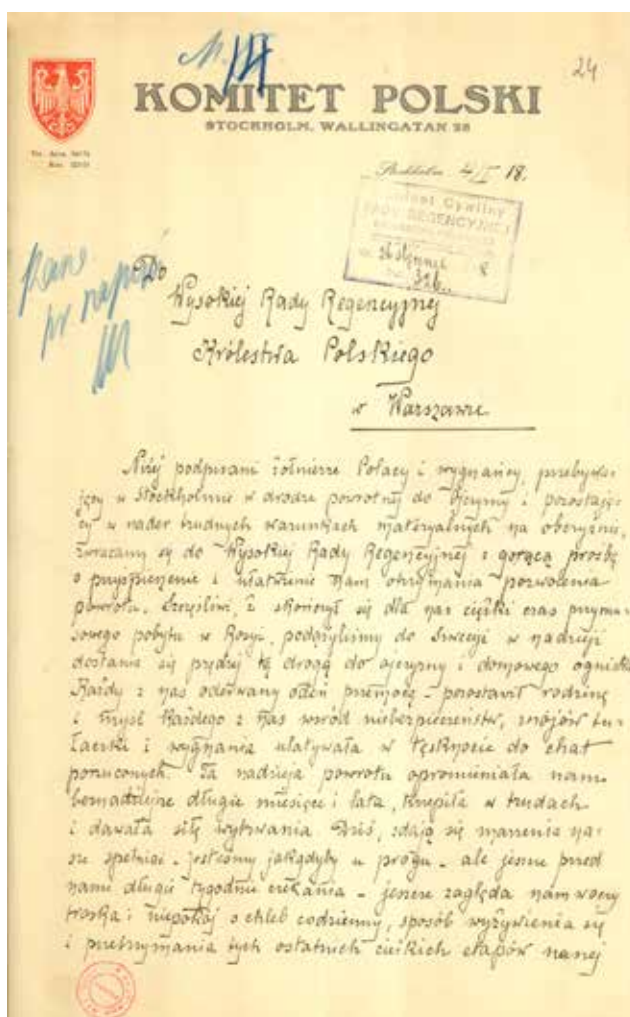 24
KOMITET POLSKI
STOCKHOLM, WALLINGATAN 28
Stockholm 4/I 18.
Cywilny
RADY REGENCYJNEJ
326
Do
Wysokiej Rady Regencyjnej
Królestwa Polskiego
w Warszawie
Niżej podpisani żołnierze Polacy i wygnańcy, przebywa-
jący w Stockholmie w drodze powrotnej do Ojczyzny i pozostają-
cy w nader trudnych warunkach materyalnych na obczyźnie,
zwracamy się do Wysokiej Rady Regencyjnej z gorącą prośbą
o przyśpieszenie i ułatwienie nam otrzymania pozwolenia
powrotu. Szczęśliwi, ż skończył się dla nas ciężki czas przymu-
sowego pobytu w Rosyi, podążyliśmy do Szwecji w nadzieji
dostania się prędzej tą drogą do ojczyzny i domowego ogniska
Każdy z nas oderwany odeń przemocą - pozostawił rodzinę
i myśl każdego z nas wśród niebezpieczeństw, znojów tu-
łaczki i wygnania ulatywała w tęsknocie do chat
porzuconych. Ta nadzieja powrotu opromieniała nam
beznadziejne długie miesiące i lata, krzepiła w trudach
i dawała siłę wytrwania Dziś, zdają się marzenia na-
sze spełniać - jesteśmy jakgdyby u progu - ale jeszcze przed
nami długie tygodnie czekania - jeszcze zagląda nam w oczy
troska i niepokój o chleb codzienny, sposób wyżywienia się
i przetrzymania tych ostatnich ciężkich etapów naszej